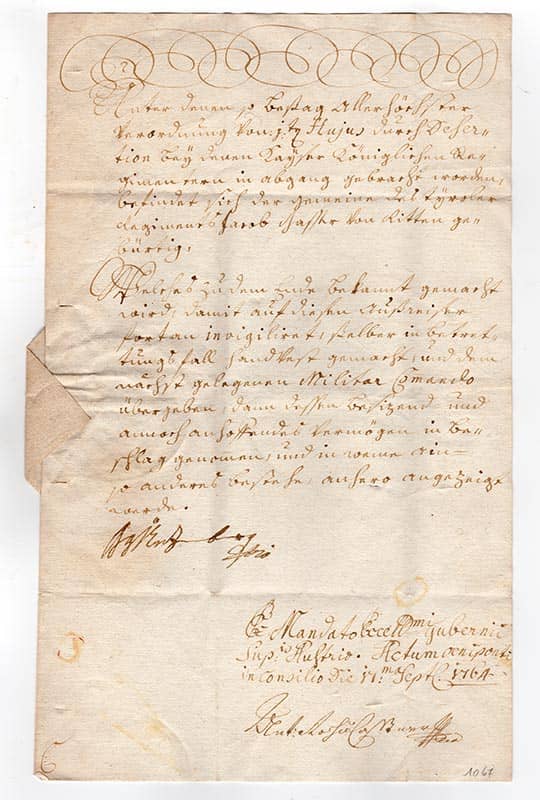 Unter denen so besag Allerhöchster
Verordnung von 1t Hujus durch Deser-
tion bey denen Kayser Königlichen Re-
gimentern in abgang gebrachtworden,
befindet sich der gemeine des tyroler
Regiments Jacob von Ritten ge-
bürtig.
Welches zu dem Ende bekannt gemacht
wird, damit auf diesen Außreiser
fortan invigiliret, selber in betret-
tungsfall handvest gemacht, und dem
nächst gelegenen Militar Comando
übergeben, dann dessen besizend- und
annoch anhoffendes Vermögen in Be-
schlag genomen, und in weme ein-
so anderes bestehe, anhero angezeigt
werde.
Ex Mandato Excellmi Gubernii
Supris Austriæ. Actum Oeniponti
in Consilio die 17ma Septb. 1764
1067